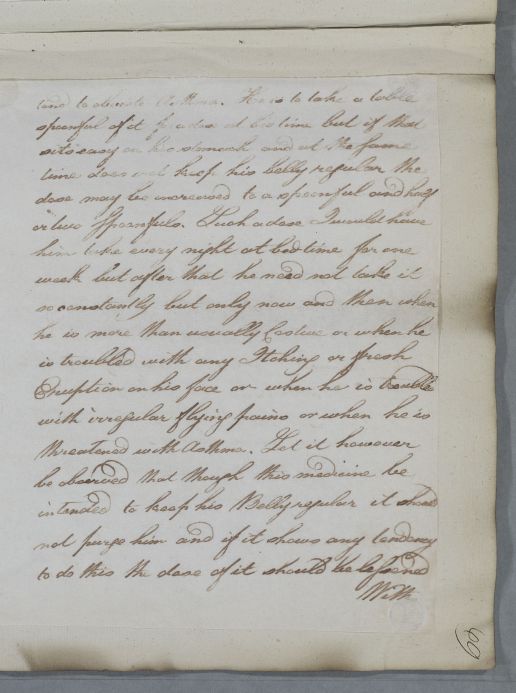 tend to obviate Asthma. He is to take a table
spoonful of it for a dose at bed time but if that
sits easy on his stomach and at the same
time does not keep his belly regular the
dose may be increased to a spoonful and half
or two spoonfuls. Such a dose I would have
him take every night at bedtime for one
week but after that he need not take it
so constantly but only now and then when
he is more than usually Costive or when he
is troubled with any Itching or fresh
Eruption on his face or when he is trouble
with irregular flying pains or when he is
threatened with Asthma. Let it however
be observed that though this medicine be
intended to keep his Belly regular it should
not purge him and if it shows any tendency
to do this the dose of it should be lessened
With
69